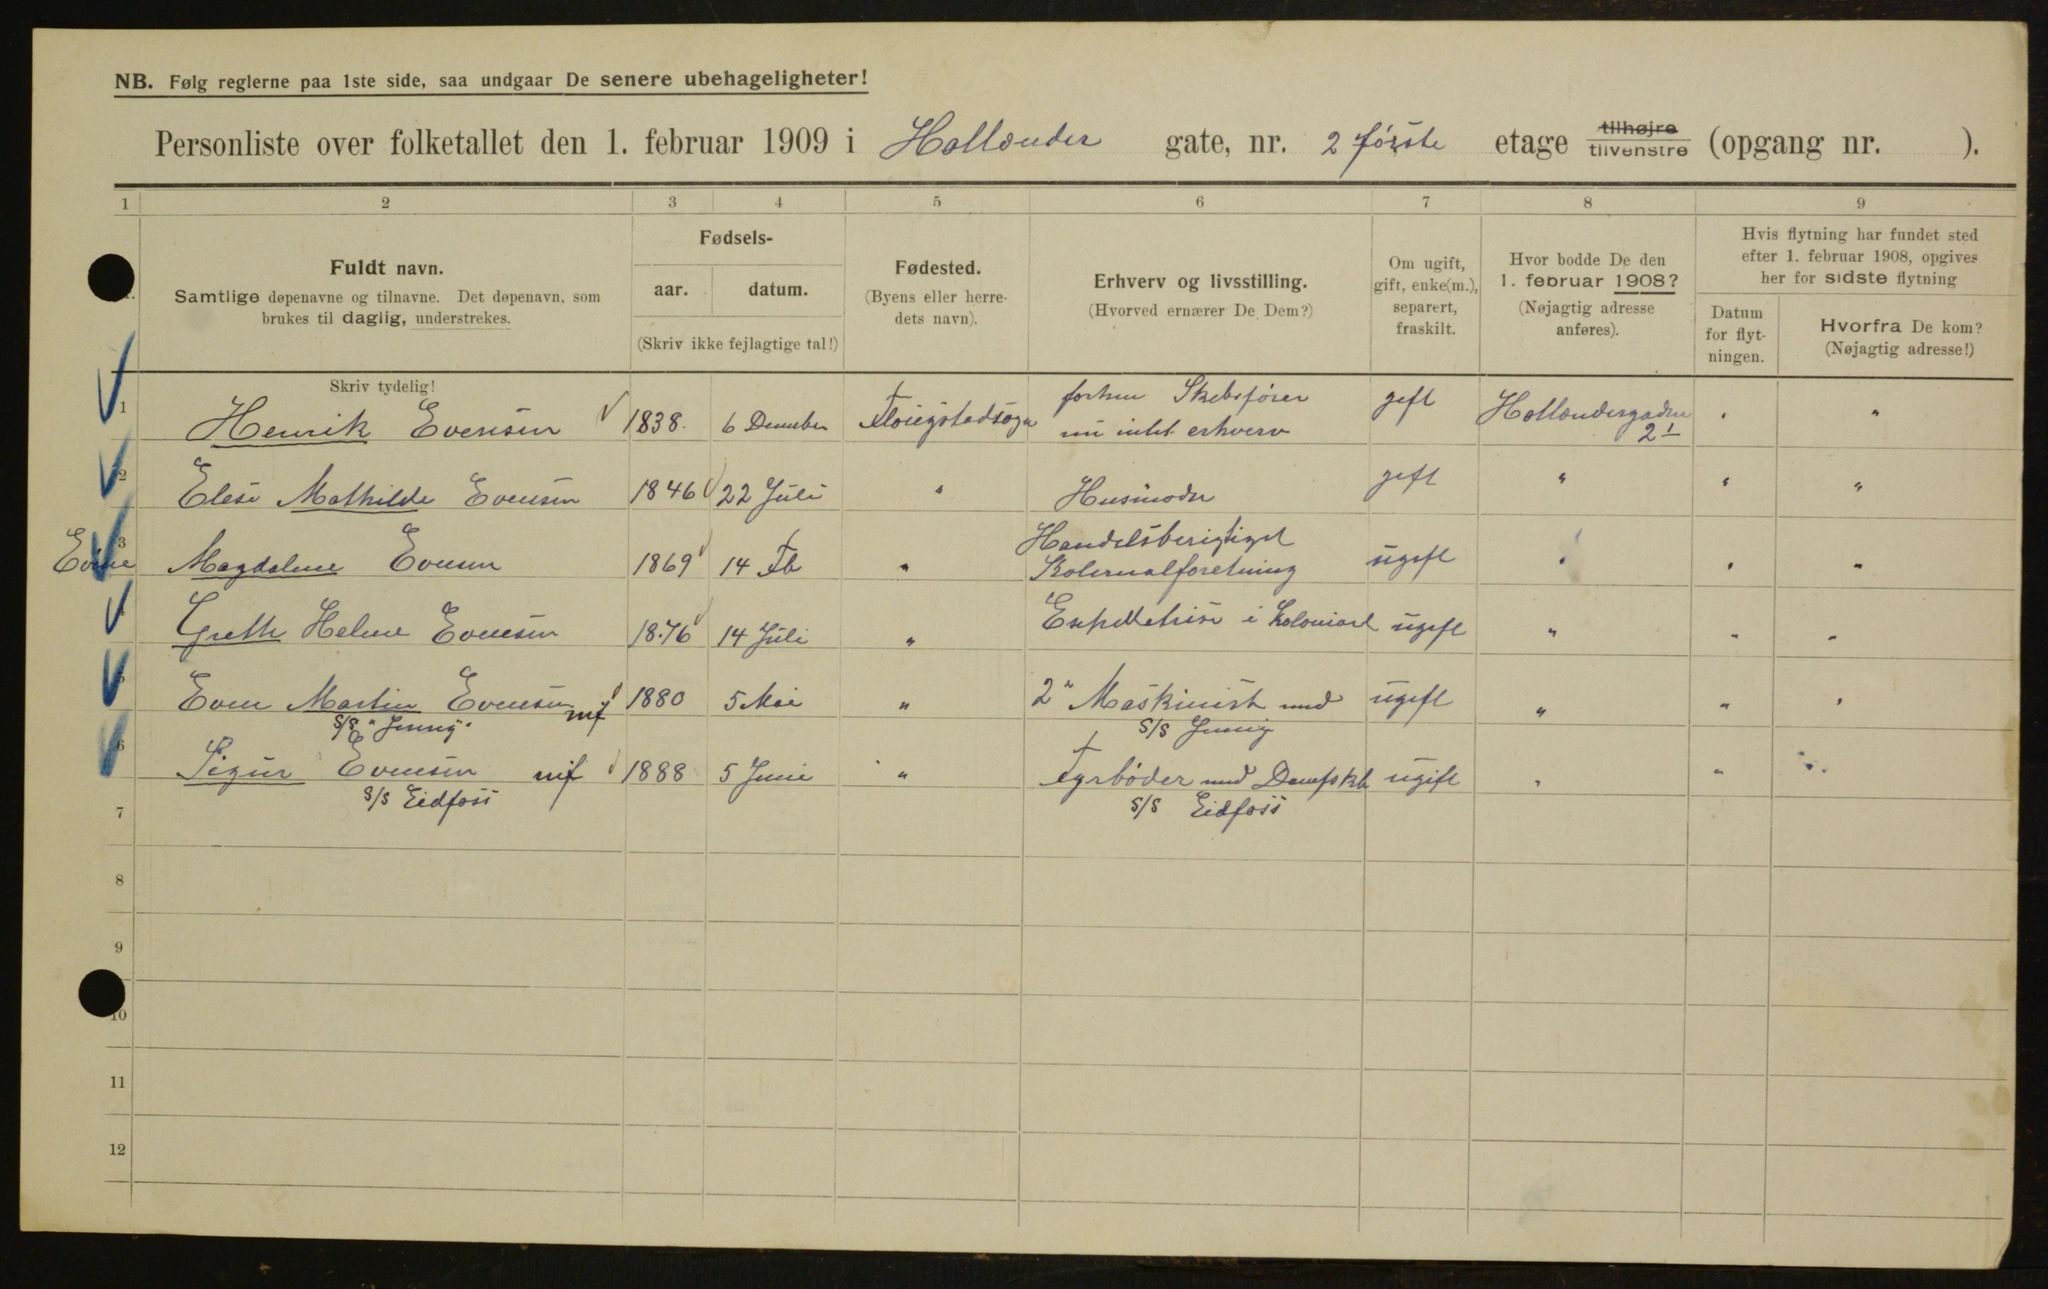 NB. Følg reglerne paa 1ste side, saa undgaar De senere ubehageligheter!
Personliste over folketallet den 1. februar 1909 i Hollænder gate, nr. 2 første etage tilhøjre tilvenstre (opgang nr. ).
1 2 3 4 5 6 7 8 9
Fuldt navn.
Samtlige døpenavne og tilnavne. Det døpenavn, som
brukes til daglig, understrekes.
Skriv tydelig!
Fødsels-
aar. datum.
(Skriv ikke fejlagtige tal!)
Fødested.
(Byens eller herre-
dets navn).
Erhverv og livsstilling.
(Hvorved ernærer De Dem?)
Om ugift,
gift, enke(m.),
separert,
fraskilt.
Hvor bodde De den
1. februar 1908?
(Nøjagtig adresse
anføres).
Hvis flytning har fundet sted
efter 1. februar 1908, opgives
her for sidste flytning
Datum
for flyt-
ningen.
Hvorfra De kom?
(Nøjagtig adresse!)
1 Henrik Evensen 1838. 6 December forhen Skibsfører gift Hollændergaden " "
nu intet erhverv 2 I
2 Elise Mathilde Evensen 1846 22 Juli " Husmoder gift " " "
3 Magdalene Evensen 1869 14 Feb " Handelsberigtiget ugift " " "
Kolonialforetning
4 Grethe Helene Evensen 1876 14 Juli " Expeditrise i Kolonial ugift " " "
5 Even Martin Evensen mf 1880 5 Mai " 2" Maskinist med ugift " " "
S/S "Jenny" S/S Jenny
6 Sigur Evensen mf 1888 5 Juni " Fyrbøder med Dampskb ugift " " "
S/S Eidfoss S/S Eidfoss
7
8
9
10
11
12